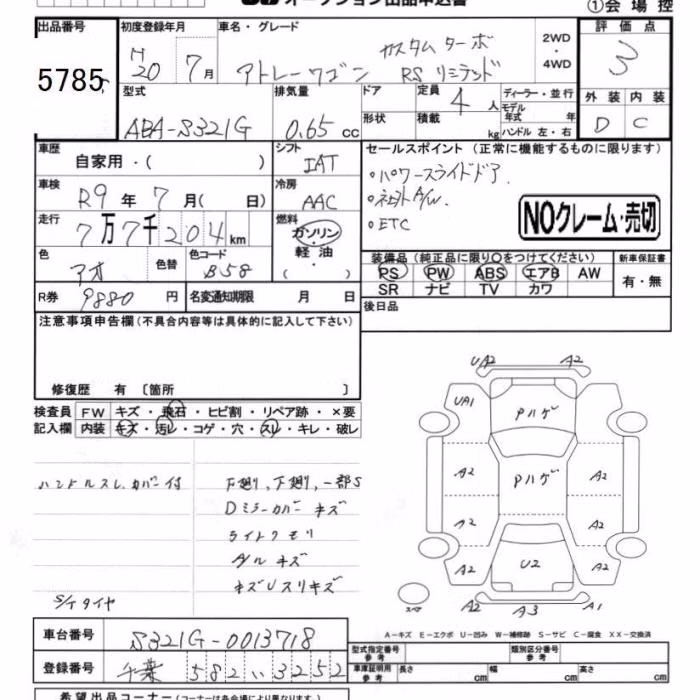 オークション出品申込書
①会場控
出品番号
5785
初度登録年月
H20 7月
車名・グレード
カスタムターボ
アトレーワゴン RSリミテッド
2WD・4WD
評価点
3
外装 内装
D C
型式
ABA-S321G
排気量
0.65 cc
ドア
形状
定員
4人
積載
kg
ディーラー・並行
モデル年式 年
ハンドル 左・右
車歴
自家用・( )
シフト
IAT
車検
R9年7月( 日)
冷房
AAC
走行
7万7千204km
燃料
ガソリン・軽油・( )
色
アオ
色替
色コード
B58
R券
9880円
名変通知期限 月 日
セールスポイント(正常に機能するものに限ります)
。パワースライドドア
。社外A/W
。ETC
NOクレーム・売切
装備品(純正品に限り〇をつけてください)
PS PW ABS エアB AW
SR ナビ TV カワ
新車保証書
有・無
後日品
注意事項申告欄(不具合内容等は具体的に記入して下さい)
修復歴 有〔箇所 〕
検査員記入欄
FW キズ・飛石・ヒビ割・リペア跡・×要
内装 キズ・汚レ・コゲ・穴・スレ・キレ・破レ
ハンドルスレ、カバー付
S/Tタイヤ
下廻り、下廻り、一部S
Dミラーカバーキズ
ライトクモリ
アルミキズ
キズUスリキズ
UA2 A2
UA1 Pハゲ
A2 Pハゲ A2
A2 A2
A2 U2 A2
スペア A2 A3 A1
A-キズ E-エクボ U-凹み W-補修跡 S-サビ C-腐食 XX-交換済
車台番号
S321G-0013718
登録番号
千葉 582 い 3252
型式指定番号 参考
類別区分番号 参考
車庫証明用 参考
長さ cm
幅 cm
高さ cm
希望出品コーナー(コーナーは各会場により異なります。)